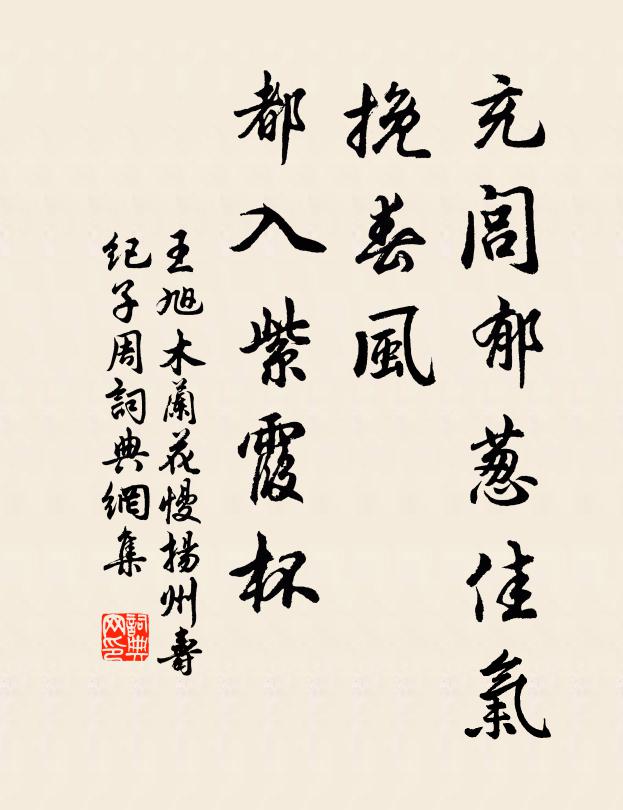 充閭郁蔥佳氣
挽春風
都入紫霞杯
王旭木蘭花慢揚州壽
紀子周詞典網集
詞典
网印